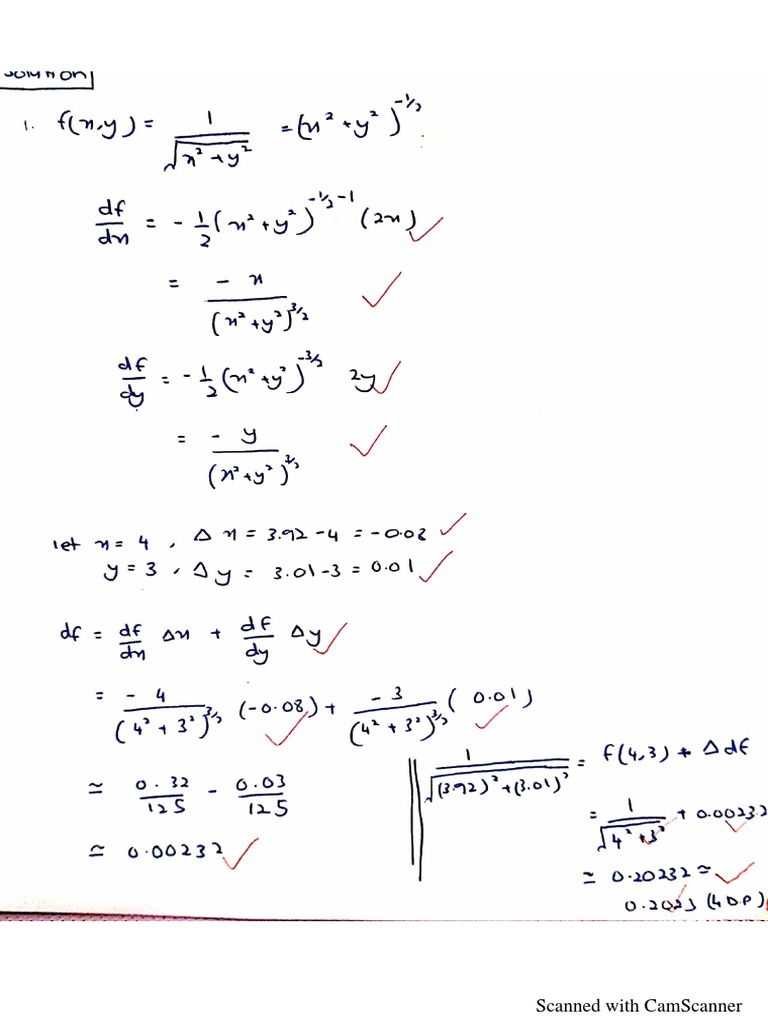 SOLUTION
1. f(x,y) = 1/√(x² + y²) = (x² + y²)^(-1/2)
df/dx = - 1/2 (x² + y²)^(-1/2 - 1) (2x)
= - x/(x² + y²)^(3/2)
df/dy = - 1/2 (x² + y²)^(-3/2) 2y
= - y/(x² + y²)^(3/2)
let x = 4 , Δ x = 3.92 - 4 = -0.08
y = 3 , Δ y = 3.01 - 3 = 0.01
df = df/dx Δx + df/dy Δy
= - 4/(4² + 3²)^(3/2) (-0.08) + - 3/(4² + 3²)^(3/2) (0.01)
≃ 0.32/125 - 0.03/125
≃ 0.00232
1/√((3.92)² + (3.01)²) = f(4,3) + Δ df
= 1/√(4² + 3²) + 0.00232
≃ 0.20232 ≃
0.2023 (4 D.P)
Scanned with CamScanner